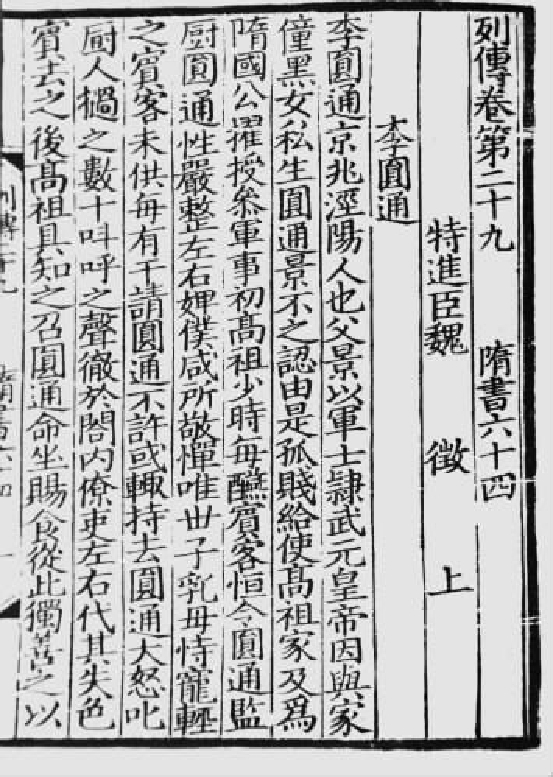 列傳卷第二十九　隋書六十四
特進臣魏　徵　上
李圓通
李圓通京兆涇陽人也父景以軍士隸武元皇帝因與家
僮黑女私生圓通景不之認由是孤賤給使髙祖家及為
隋國公擢授叅軍事初髙祖少時每醼賓客恒令圓通監
厨圓通性嚴整左右婢僕咸所敬憚唯世子乳母恃寵輕
之賓客未供每有干請圓通不許或輙持去圓通大怒叱
厨人撾之數十叫呼之聲徹於閤内僚吏左右代其失色
賓去之後髙祖具知之召圓通命坐賜食從此獨善之以